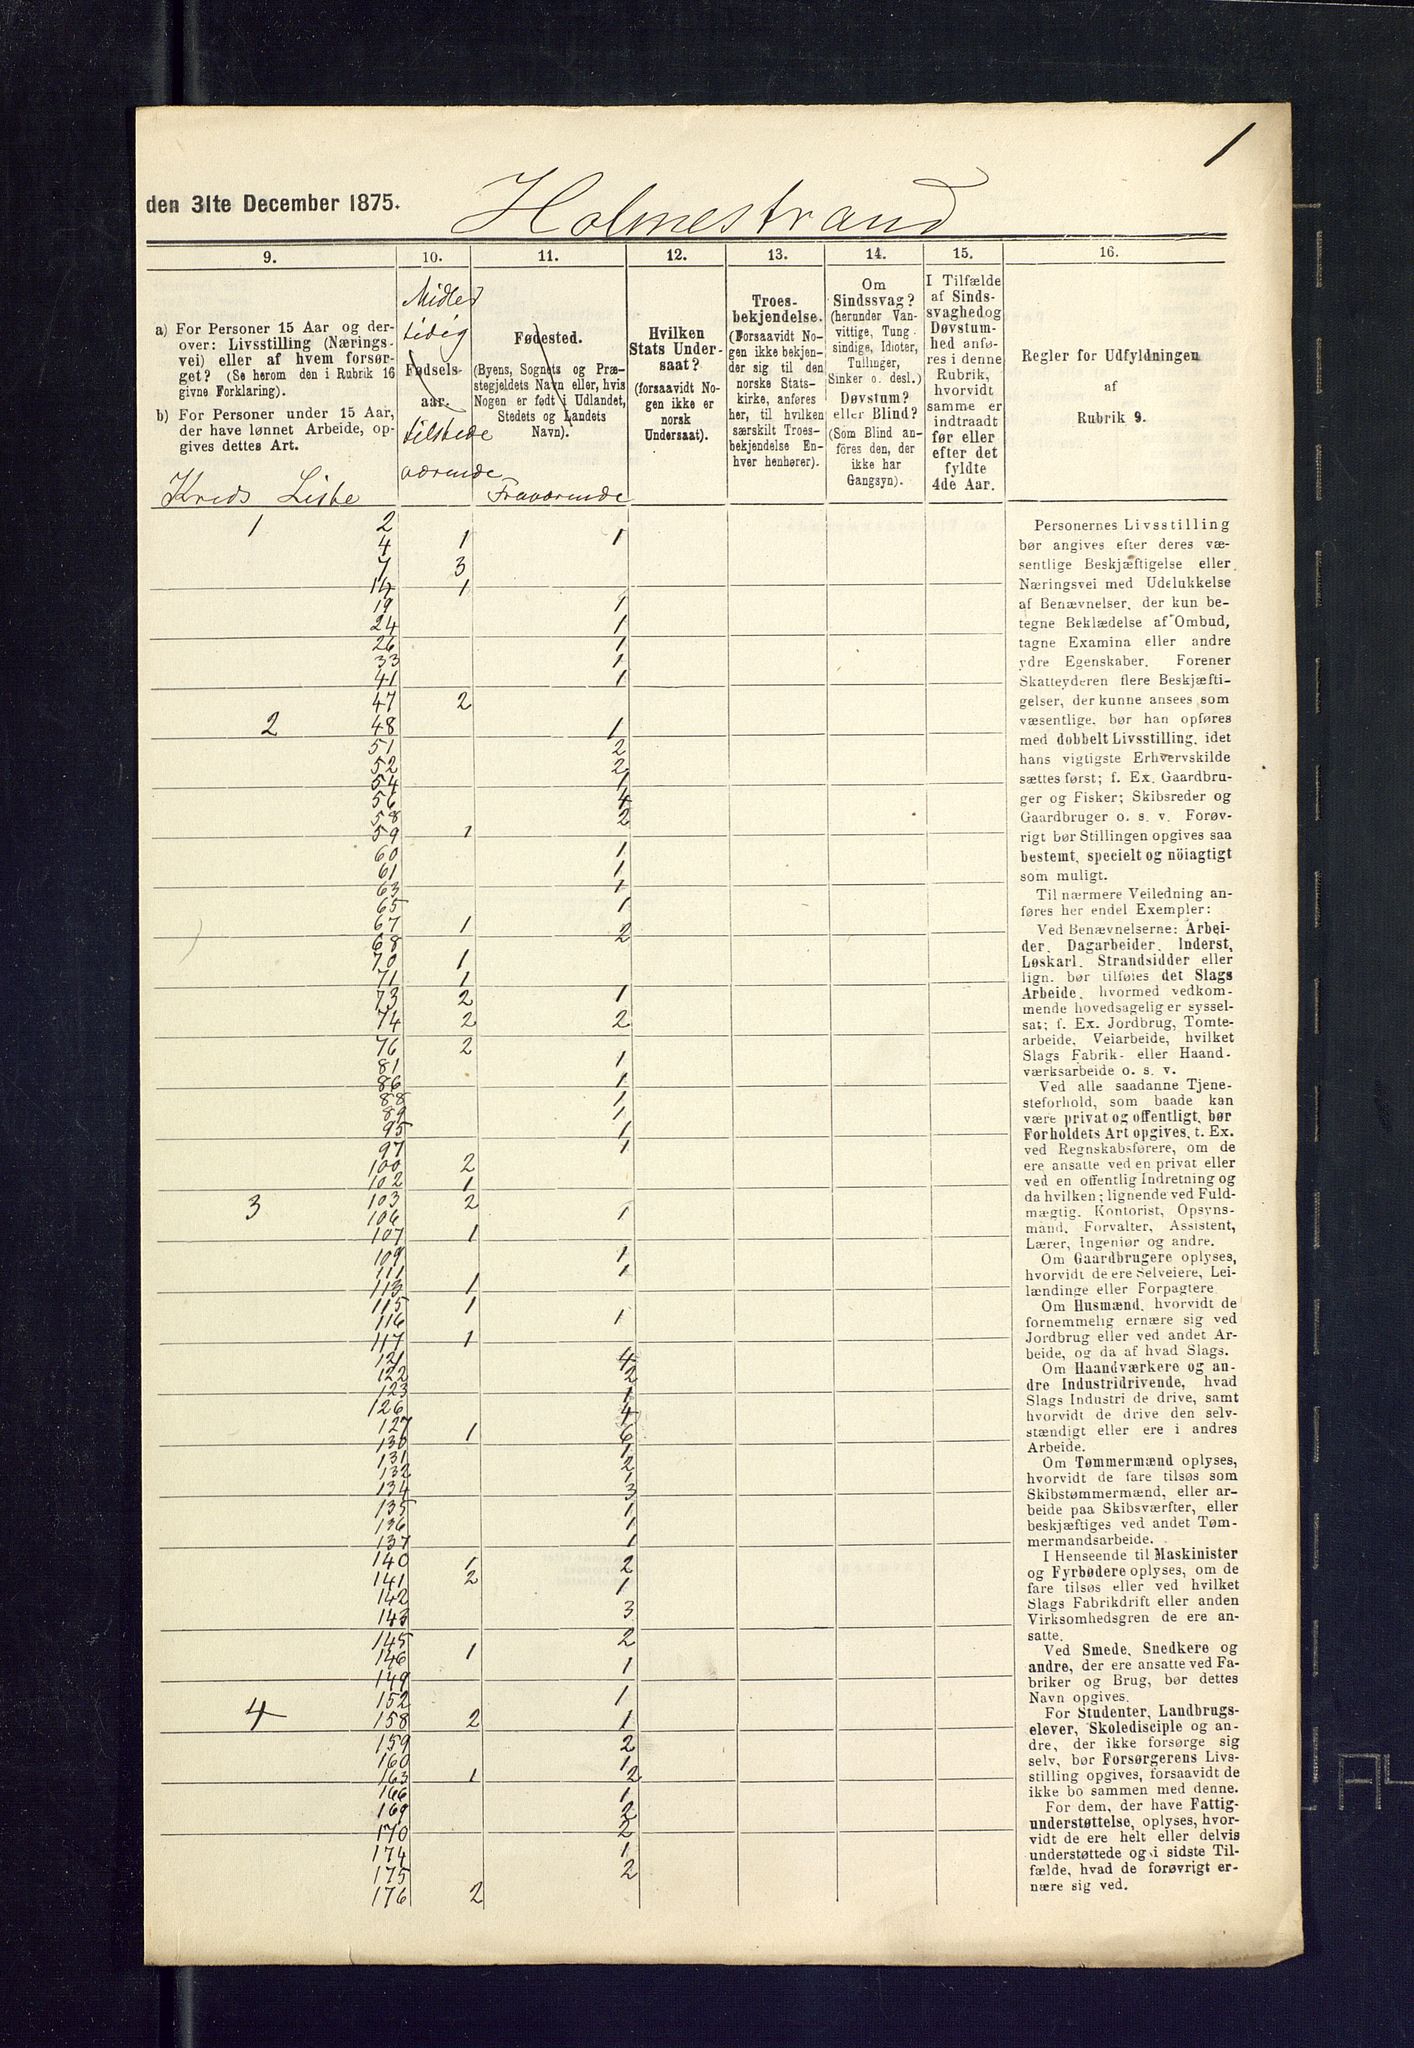 1
den 31te December 1875. Holmestrand
9. 10. 11. 12. 13. 14. 15. 16.
a) For Personer 15 Aar og der-
over: Livsstilling (Nærings-
vei) eller af hvem forsør-
get? (Se herom den i Rubrik 16
givne Forklaring).
b) For Personer under 15 Aar,
der have lønnet Arbeide, op-
gives dettes Art.
Kreds Liste
Midler
tidig
Fødsels-
aar.
tilstede
værende
Fødested.
(Byens, Sognets og Præ-
stegjeldets Navn eller, hvis
Nogen er født i Udlandet,
Stedets og Landets
Navn).
Fraværende
Hvilken
Stats Under-
saat?
(forsaavidt No-
gen ikke er
norsk
Undersaat).
Troes-
bekjendelse.
(Forsaavidt No-
gen ikke bekjen-
der sig til den
norske Stats-
kirke, anføres
her, til hvilken
særskilt Troes-
bekjendelse En-
hver henhører).
Om
Sindssvag?
(herunder Van-
vittige, Tung-
sindige, Idioter,
Tullinger,
Sinker o. desl.)
Døvstum?
eller Blind?
(Som Blind an-
føres den, der
ikke har
Gangsyn).
I Tilfælde
af Sinds-
svaghed og
Døvstum-
hed anfø-
res i denne
Rubrik,
hvorvidt
samme er
indtraadt
før eller
efter det
fyldte
4de Aar.
Regler for Udfyldningen
af
Rubrik 9.
1 2
4 1 1
7 3
14 1
19 1
24 1
26 1
33 1
41 1
47 2
2 48 1
51 2
52 2
54 1
56 4
58 2
59 1
60 1
61 1
63 1
65 1
67 1 2
68
70 1
71 1
73 2 1
74 2 2
76 2
81 1
86 1
88 1
89 1
95 1
97 1
100 2
102 1
3 103 2
106 1
107 1
109 1
111 1
113 1
115 1
116 1
117 1
121 4
122 2
123 1
126 4
127 1 6
130 1
131 2
132 1
134 3
135 1
136 1
137 1
140 1 2
141 2
142 1
143 3
145 2
146 1
149 1
152 1
4 158 2 1
159 2
160 1
163 1 2
166 1
169 2
170 2
174 1
175 2
176 2
Personernes Livsstilling
bør angives efter deres væ-
sentlige Beskjæftigelse eller
Næringsvei med Udelukkelse
af Benævnelser, der kun be-
tegne Beklædelse af Ombud,
tagne Examina eller andre
ydre Egenskaber. Forener
Skatteyderen flere Beskjæfti-
gelser, der kunne ansees som
væsentlige, bør han opføres
med dobbelt Livsstilling, idet
hans vigtigste Erhvervskilde
sættes først; f. Ex. Gaardbru-
ger og Fisker; Skibsreder og
Gaardbruger o. s. v. Forøv-
rigt bør Stillingen opgives saa
bestemt, specielt og nöiagtigt
som muligt.
Til nærmere Veiledning an-
føres her endel Exempler:
Ved Benævnelserne: Arbei-
der, Dagarbeider, Inderst,
Løskarl, Strandsidder eller
lign. bør tilføies det Slags
Arbeide, hvormed vedkom-
mende hovedsagelig er syssel-
sat; f. Ex. Jordbrug, Tomte-
arbeide, Veiarbeide, hvilket
Slags Fabrik- eller Haand-
værksarbeide o. s. v.
Ved alle saadanne Tjene-
steforhold, som baade kan
være privat og offentligt, bør
Forholdets Art opgives, t. Ex.
ved Regnskabsførere, om de
ere ansatte ved en privat eller
ved en offentlig Indretning og
da hvilken; lignende ved Fuld-
mægtig, Kontorist, Opsyns-
mand, Forvalter, Assistent,
Lærer, Ingeniør og andre.
Om Gaardbrugere oplyses,
hvorvidt de ere Selveiere, Lei-
lændinge eller Forpagtere
Om Husmænd, hvorvidt de
fornemmelig ernære sig ved
Jordbrug eller ved andet Ar-
beide, og da af hvad Slags.
Om Haandværkere og an-
dre Industridrivende, hvad
Slags Industri de drive, samt
hvorvidt de drive den selv-
stændigt eller ere i andres
Arbeide.
Om Tømmermænd oplyses,
hvorvidt de fare tilsøs som
Skibstømmermænd, eller ar-
beide paa Skibsværfter, eller
beskjæftiges ved andet Tøm-
mermandsarbeide.
I Henseende til Maskinister
og Fyrbødere oplyses, om de
fare tilsøs eller ved hvilket
Slags Fabrikdrift eller anden
Virksomhedsgren de ere an-
satte.
Ved Smede, Snedkere og
andre, der ere ansatte ved Fa-
briker og Brug, bør dettes
Navn opgives.
For Studenter, Landbrugs-
elever, Skoledisciple og an-
dre, der ikke forsørge sig
selv, bør Forsørgerens Livs-
stilling opgives, forsaavidt de
ikke bo sammen med denne.
For dem, der have Fattig-
understøttelse, oplyses, hvor-
vidt de ere helt eller delvis
understøttede og i sidste Til-
fælde, hvad de forøvrigt er-
nære sig ved.